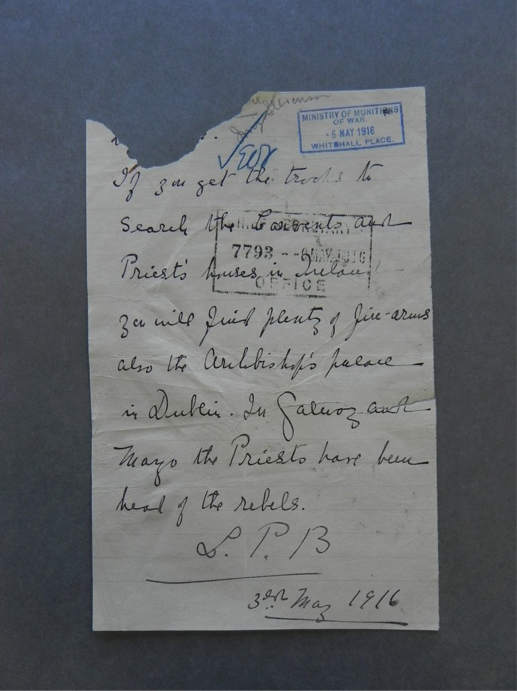 MINISTRY OF MUNITIONS
OF WAR.
-6 MAY 1916
WHITEHALL PLACE.
If you get the troops to
search the Convents and
7793 -- 6 MAY 1916
OFFICE
Priest's houses in Ireland
you will find plenty of fire-arms
also the Archbishop's palace
in Dublin. In Galway and
Mayo the Priests have been
head of the rebels.
L. P. B
3rd May 1916